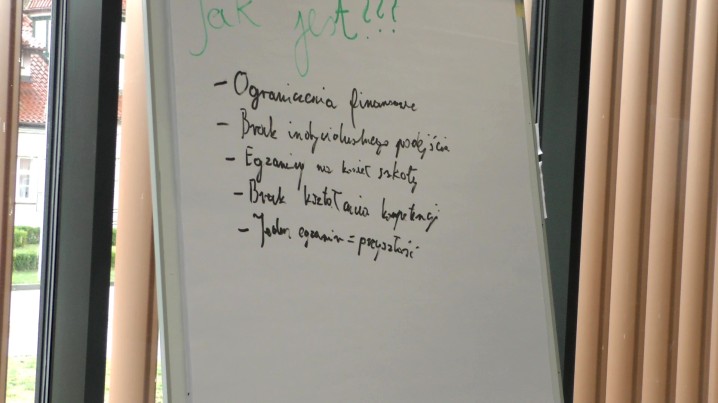 Jak jest???
- Ograniczenia finansowe
- Brak indywidualnego podejścia
- Egzaminy na koniec szkoły
- Brak kształcenia kompetencji
- Jeden egzamin = przyszłość